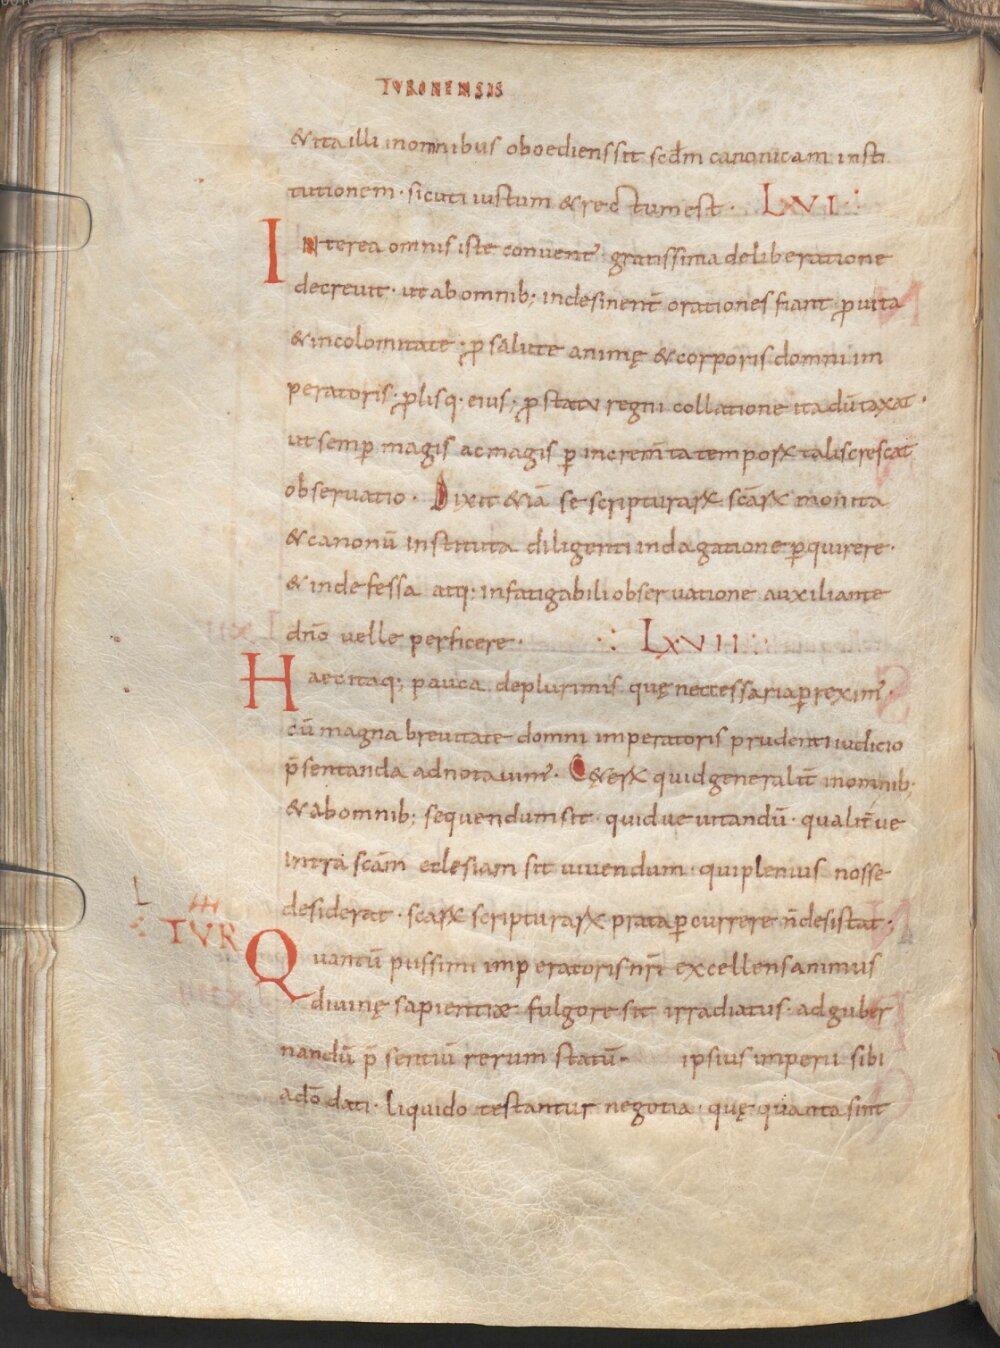 TVRONENSIS
& ita illi in omnibus oboediens sit scđm canonicam insti
tutionem · sicuti iustum & rectum est · LXVI :
Interea omnis iste convent' gratissima deliberatione
decreuit · ut ab omnib; indesinent̄ orationes fiant · ꝓ uita
& incolomitate · ꝓ salute animę & corporis domni im
peratoris · ꝓlisq· eius · ꝓ statu regni collatione ita dūtaxat ·
ut semp̱ magis ac magis ꝑ increm̄ta temporꝝ talis crescat
observatio · Dixit & iā se scripturarꝝ scārꝝ monita
& canonū instituta diligenti indagatione ꝑquirere ·
& indefessa atq: infatigabili observatione auxiliante
dn̄o velle perficere · LXVII :
Haec itaq; pauca de plurimis quę neccessaria ꝑreximꝰ ·
cū magna brevitate domni imperatoris prudenti iudicio
p̄sentanda adnotauimꝰ · Cęterꝝ quid generalit̄ in omnib;
& ab omnib; sequendum sit · quid ue uitandū · qualit̄ ue
intra scām eclesiam sit uiuendum · qui plenius nosse
desiderat · scarꝝ scripturarꝝ prata ꝑcurrere n̄ desistat ·
L
III
TVR
Quantū piissimi imperatoris nr̄i excellens animus
divinę sapientiæ fulgore sit irradiatus · ad guber
nandū p̄sentiū rerum statū · ipsius imperii sibi
a do̅ dati · liquido testantur negotia · quę quanta sint